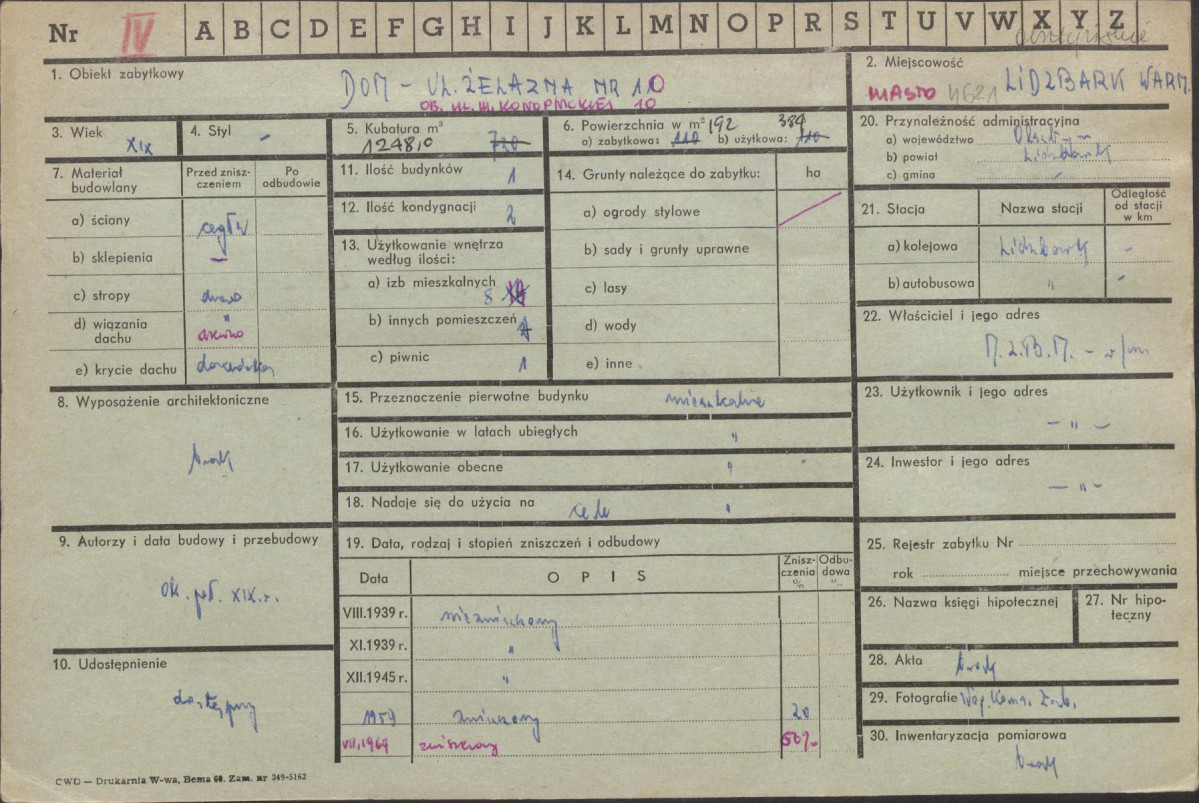 Nr IV A B C D E F G H I J K L M N O P R S T U V W X Y Z
1. Obiekt zabytkowy
DOM – UL. ŻELAZNA NR 10
OB. UL. M. KONOPNICKIEJ 10
2. Miejscowość
MIASTO LIDZBARK WARM.
3. Wiek
XIX
4. Styl –
5. Kubatura m³
1248,0 720
6. Powierzchnia w m² 192 384
a) zabytkowa: 110 b) użytkowa: 110
20. Przynależność administracyjna
a) województwo
b) powiat
c) gmina
7. Materiał budowlany
Przed zniszczeniem
Po odbudowie
a) ściany
b) sklepienia –
c) stropy
d) wiązania dachu "
drewno
e) krycie dachu dachówka
11. Ilość budynków 1
12. Ilość kondygnacji 2
13. Użytkowanie wnętrza według ilości:
a) izb mieszkalnych 8
b) innych pomieszczeń
c) piwnic 1
14. Grunty należące do zabytku: ha
a) ogrody stylowe
b) sady i grunty uprawne
c) lasy
d) wody
e) inne
21. Stacja
Nazwa stacji
Odległość od stacji w km
a) kolejowa Lidzbark –
b) autobusowa " –
22. Właściciel i jego adres
M.Z.B.M. – w/m
8. Wyposażenie architektoniczne
brak
15. Przeznaczenie pierwotne budynku mieszkalne
16. Użytkowanie w latach ubiegłych "
17. Użytkowanie obecne "
18. Nadaje się do użycia na cele "
23. Użytkownik i jego adres
– " –
24. Inwestor i jego adres
– " –
9. Autorzy i data budowy i przebudowy
ok. poł. XIX w.
19. Data, rodzaj i stopień zniszczeń i odbudowy
Data
OPIS
Zniszczenia %
Odbudowa %
VIII.1939 r. niezniszczony
XI.1939 r. "
XII.1945 r. "
1959 zniszczony 20
VII.1969 zniszczony 50%
25. Rejestr zabytku Nr
rok miejsce przechowywania
26. Nazwa księgi hipotecznej
27. Nr hipoteczny
10. Udostępnienie
dostępny
28. Akta brak
29. Fotografie Woj. Kons. Zab.
30. Inwentaryzacja pomiarowa
brak
CWD — Drukarnia W-wa, Bema 60. Zam. nr 349-5162